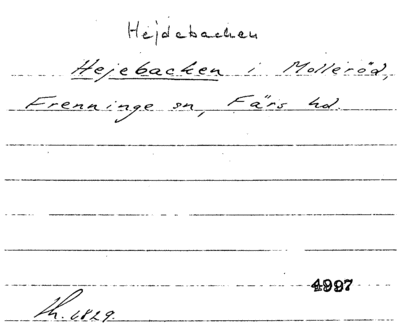 Hejdebacken
Hejebacken i Molleröd,
Frenninge sn, Färs hd.
4997
1829.